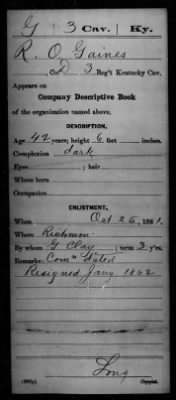 G 3 Cav. Ky.
R. O. Gaines
, Co. D, 3 Reg't Kentucky Cav.
Appears on
Company Descriptive Book
of the organization named above.
DESCRIPTION.
Age 42 years; height 6 feet inches.
Complexion dark
Eyes ; hair
Where born
Occupation
ENLISTMENT.
When Oct 25, 1861.
Where Richmon
By whom G Clay ; term 3 y'rs.
Remarks: Comn dated
Resigned Jany 1862
Long
Copyist.